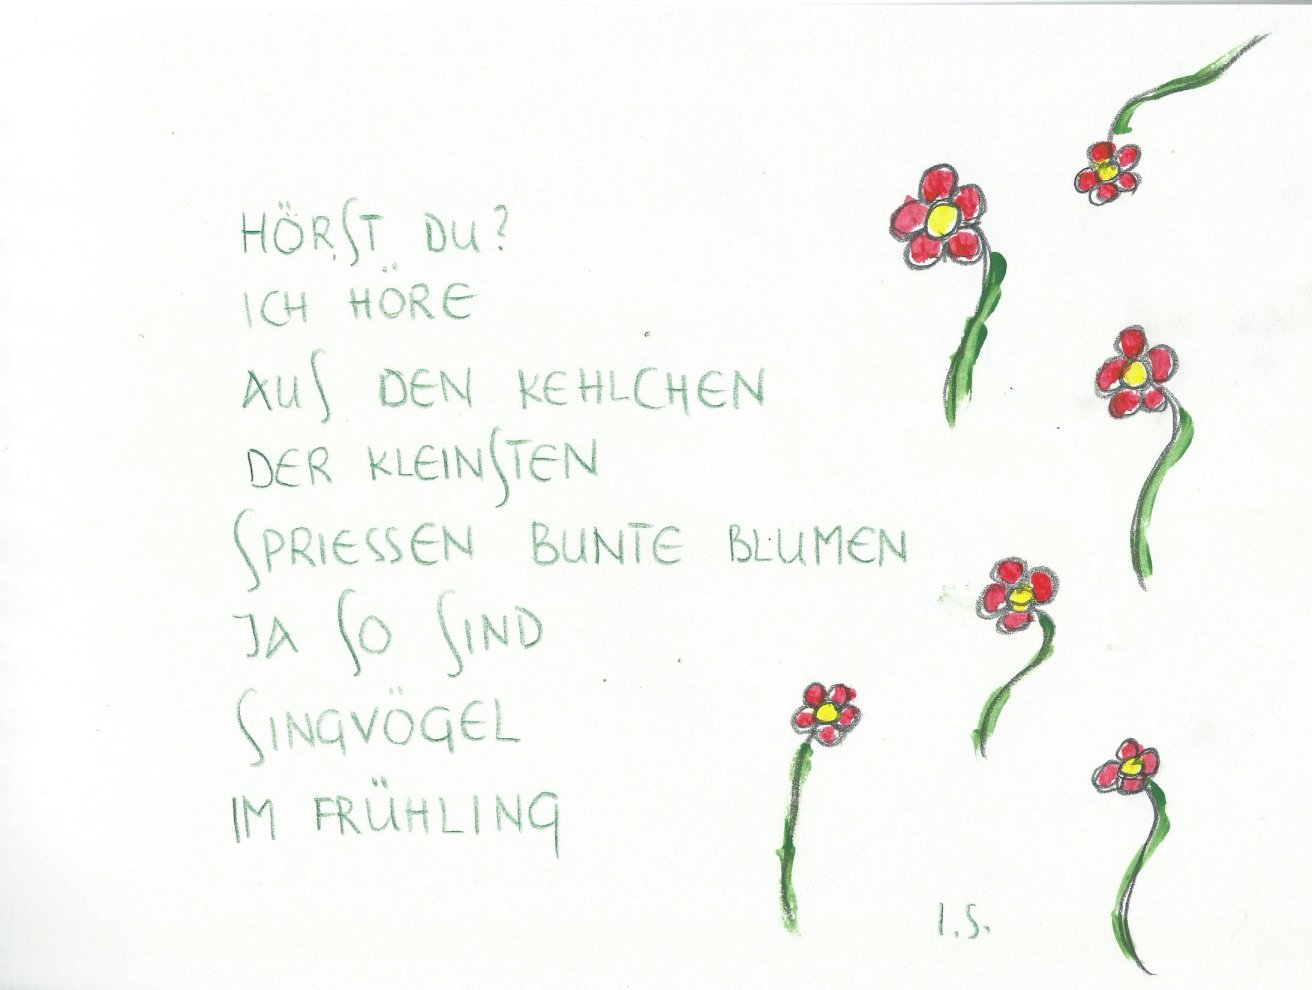 HÖRST DU?
ICH HÖRE
AUS DEN KEHLCHEN
DER KLEINSTEN
SPRIESSEN BUNTE BLUMEN
JA SO SIND
SINGVÖGEL
IM FRÜHLING
I.S.